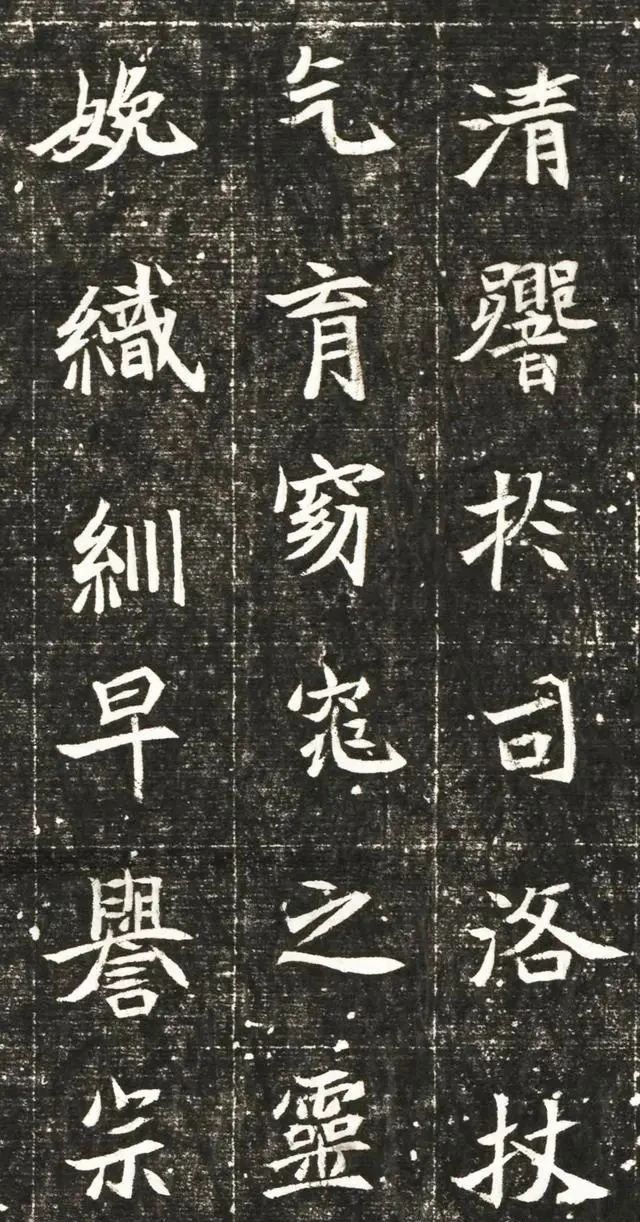 清響扵司洛扙
气育窈窕之靈
娩織紃早譽宗